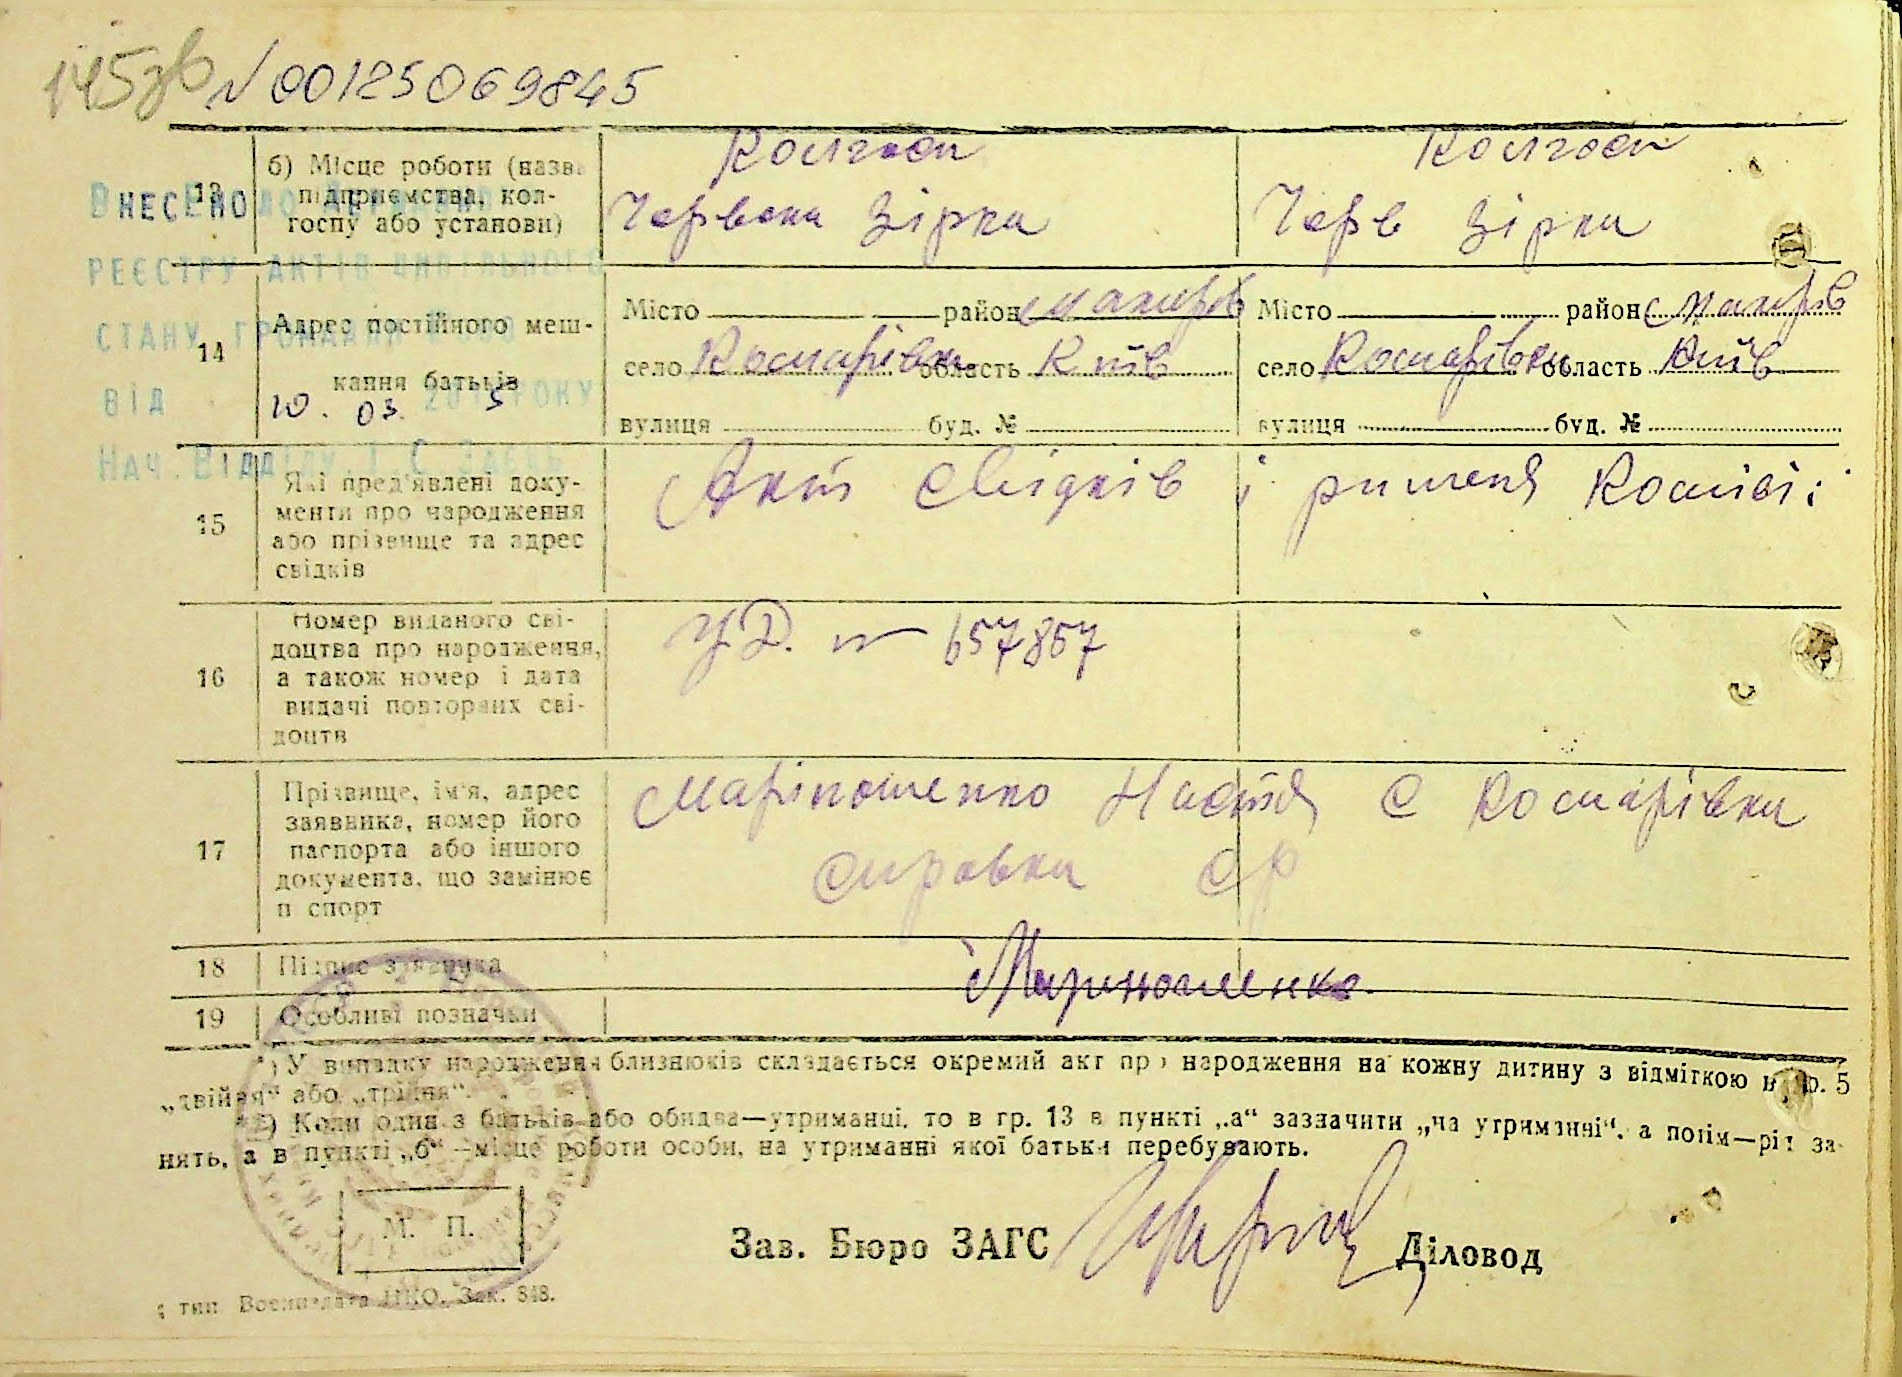 145зв № 00125069845
13
б) Місце роботи (назва
підприємства, кол-
госпу або установи)
Колгосп
Червона Зірка
Колгосп
Черв Зірка
Внесено до Державного
реєстру актів цивільного
стану громадян 2888
від 10. 03. 2015 року
Нач. Відділу І.С. Заєць
14
Адрес постійного меш-
кання батьків
Місто район Макарів
село Комарівка область Київ
вулиця буд. №
Місто район Макарів
село Комарівка область Київ
вулиця буд. №
15
Які пред'явлені доку-
менти про народження
або прізвище та адрес
свідків
Акт свідків і ришеня Комісіі
16
Номер виданого сві-
доцтва про народження,
а також номер і дата
видачі повторних сві-
доцтв
УД. № 657857
17
Прізвище, ім'я, адрес
заявника, номер його
паспорта або іншого
документа, що замінює
п спорт
Мариношенко Настя С Комарівка
справка СР
18
Підпис заявника
Мариношенко.
19
Особливі позначки
*) У випадку народження близнюків складається окремий акт про народження на кожну дитину з відміткою в гр. 5
„двійня“ або „трійня“.
*2) Коли один з батьків або обидва—утриманці, то в гр. 13 в пункті „а“ зазначити „на утриманні“, а потім—рід за-
нять, а в пункті „б“—місце роботи особи, на утриманні якої батьки перебувають.
М. П.
Зав. Бюро ЗАГС
Діловод
тип Воениздата НКО. Зак. 848.